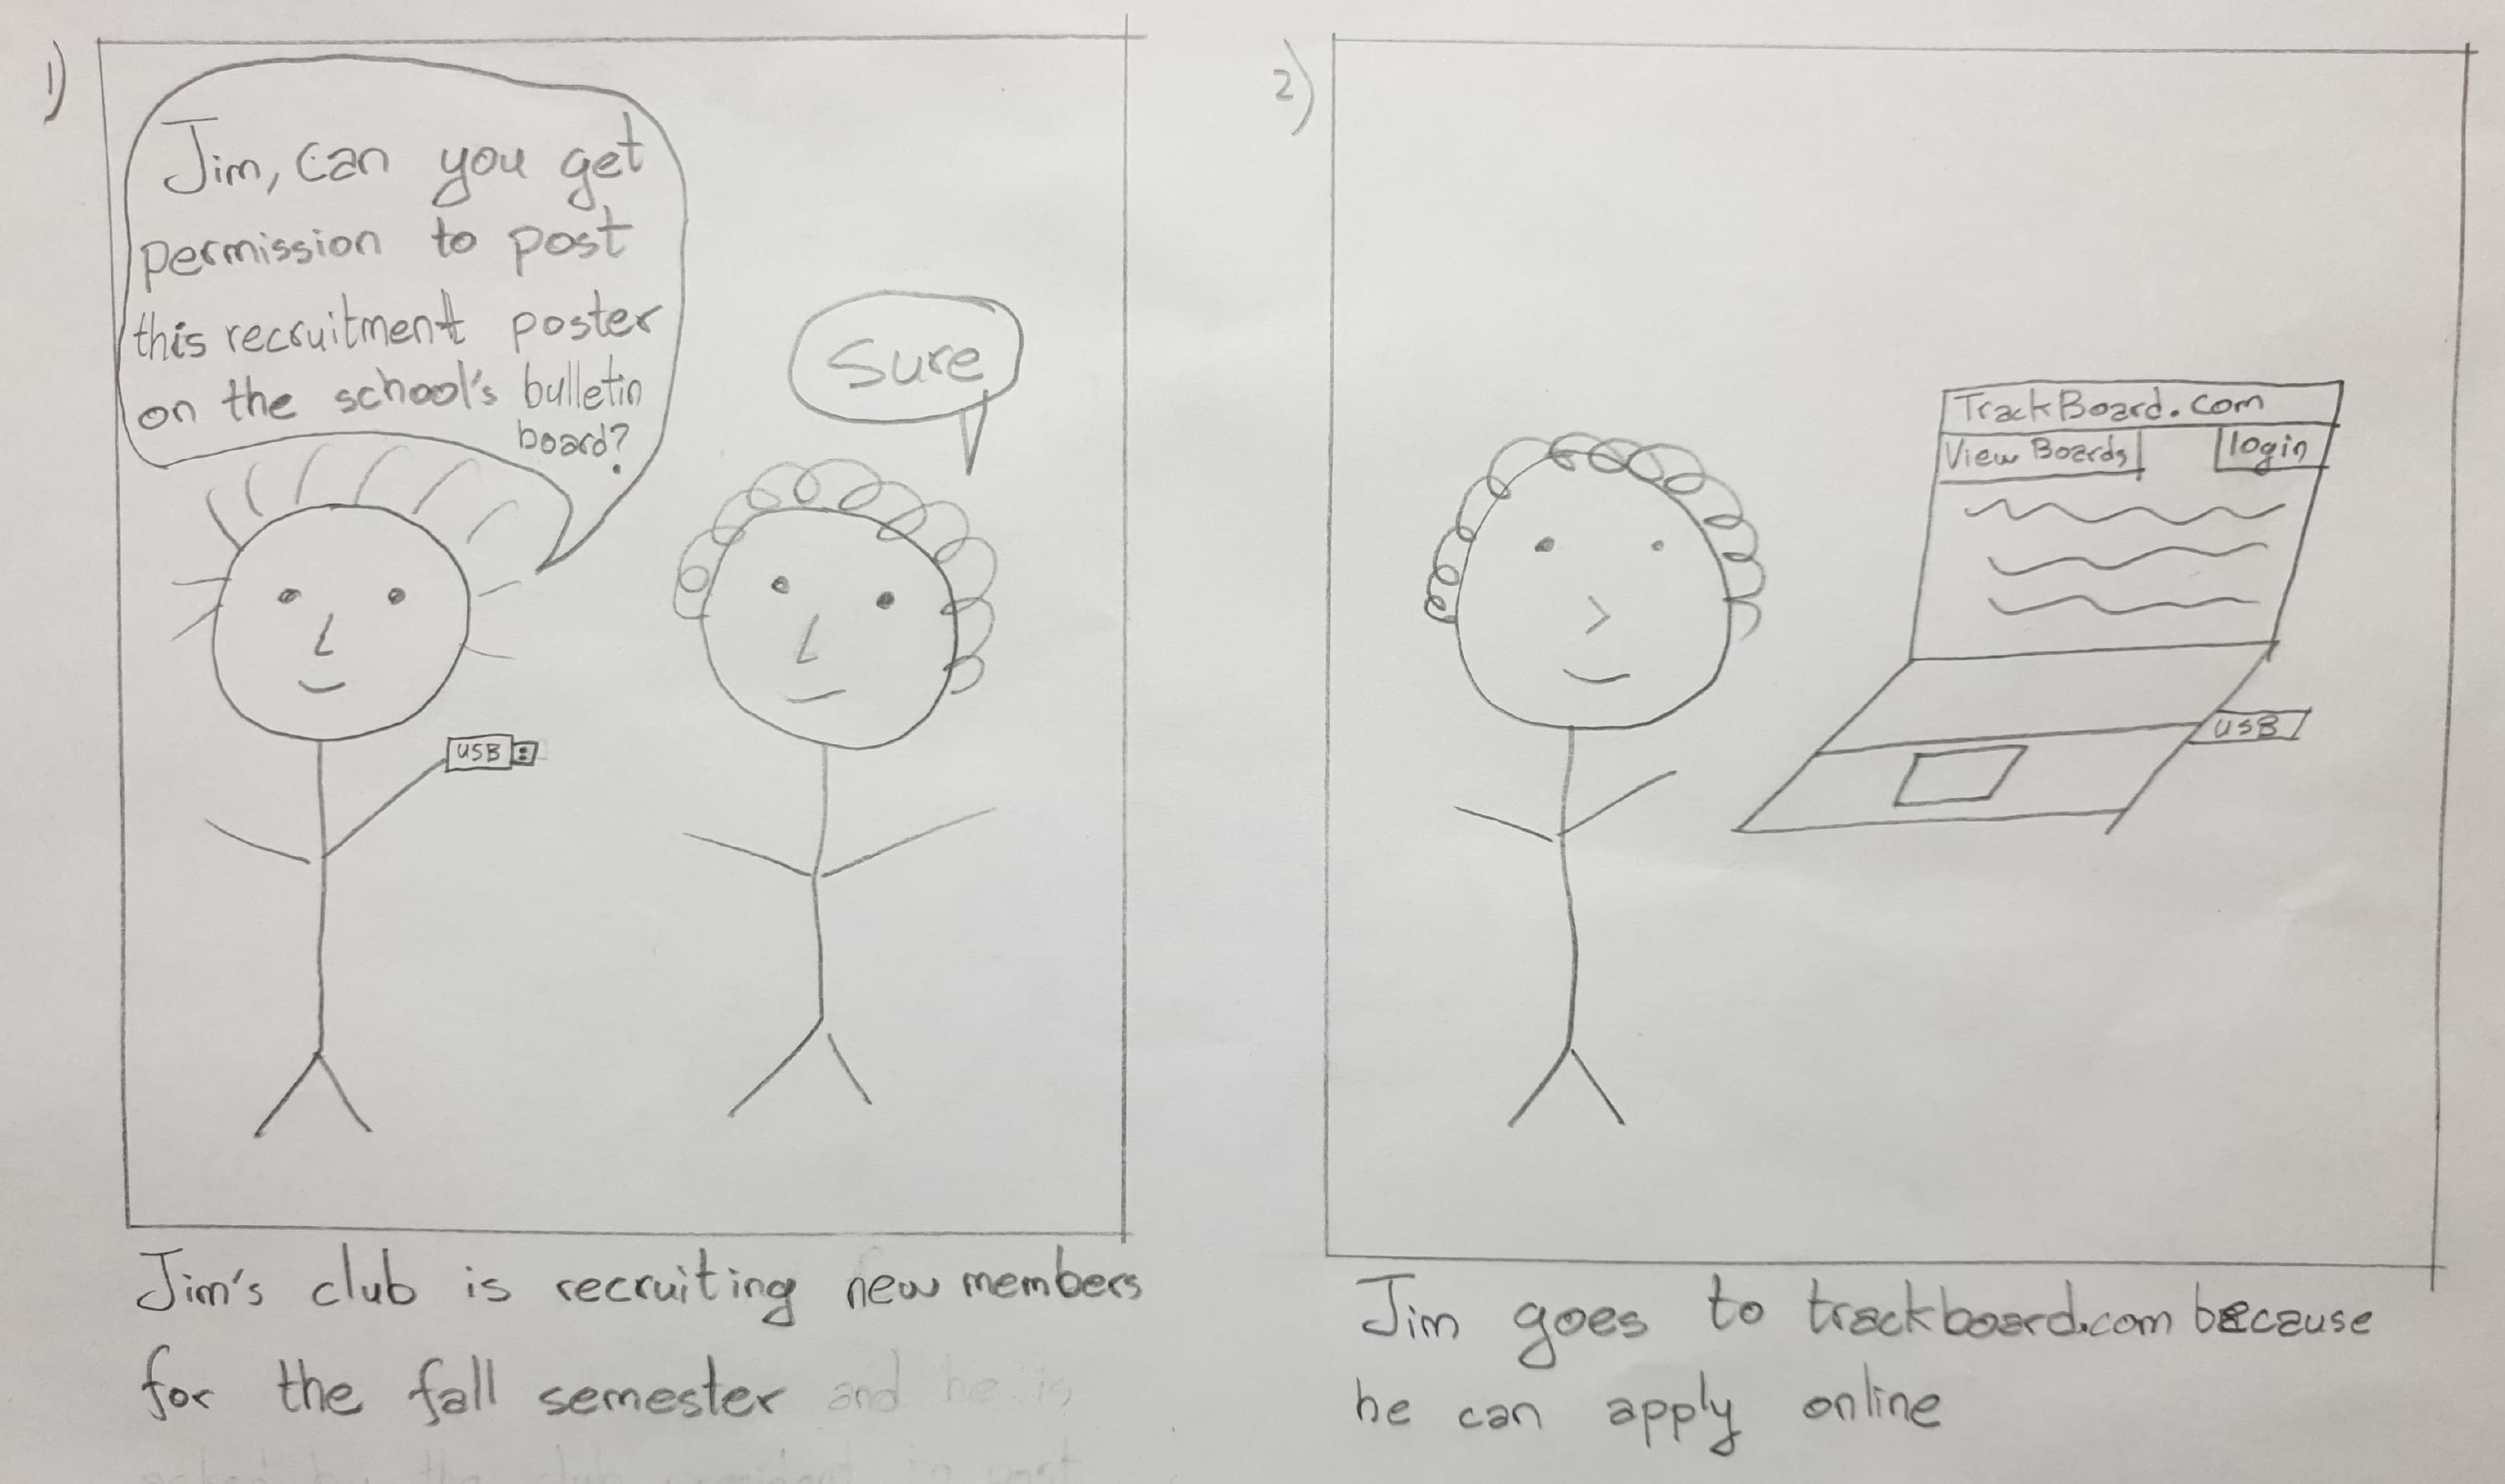 1)
Jim, can you get
permission to post
this recruitment poster
on the school's bulletin
board?
Sure
USB
Jim's club is recruiting new members
for the fall semester and he is
asked by the club president to post
2)
TrackBoard.com
View Boards
login
USB
Jim goes to trackboard.com because
he can apply online